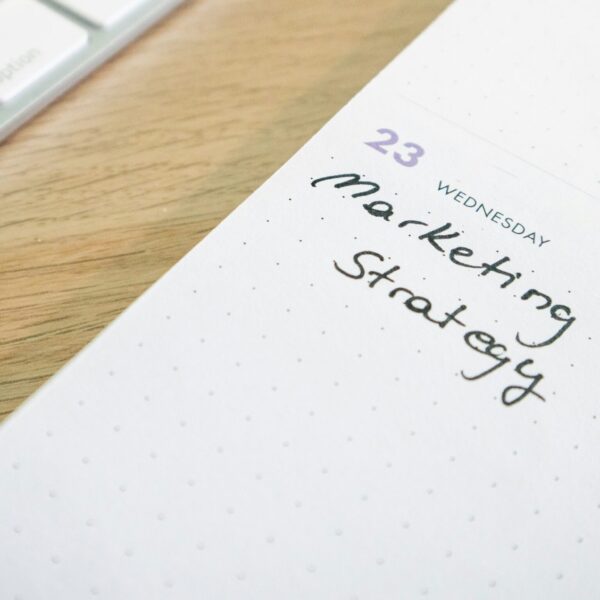 option
23
WEDNESDAY
Marketing
Strategy